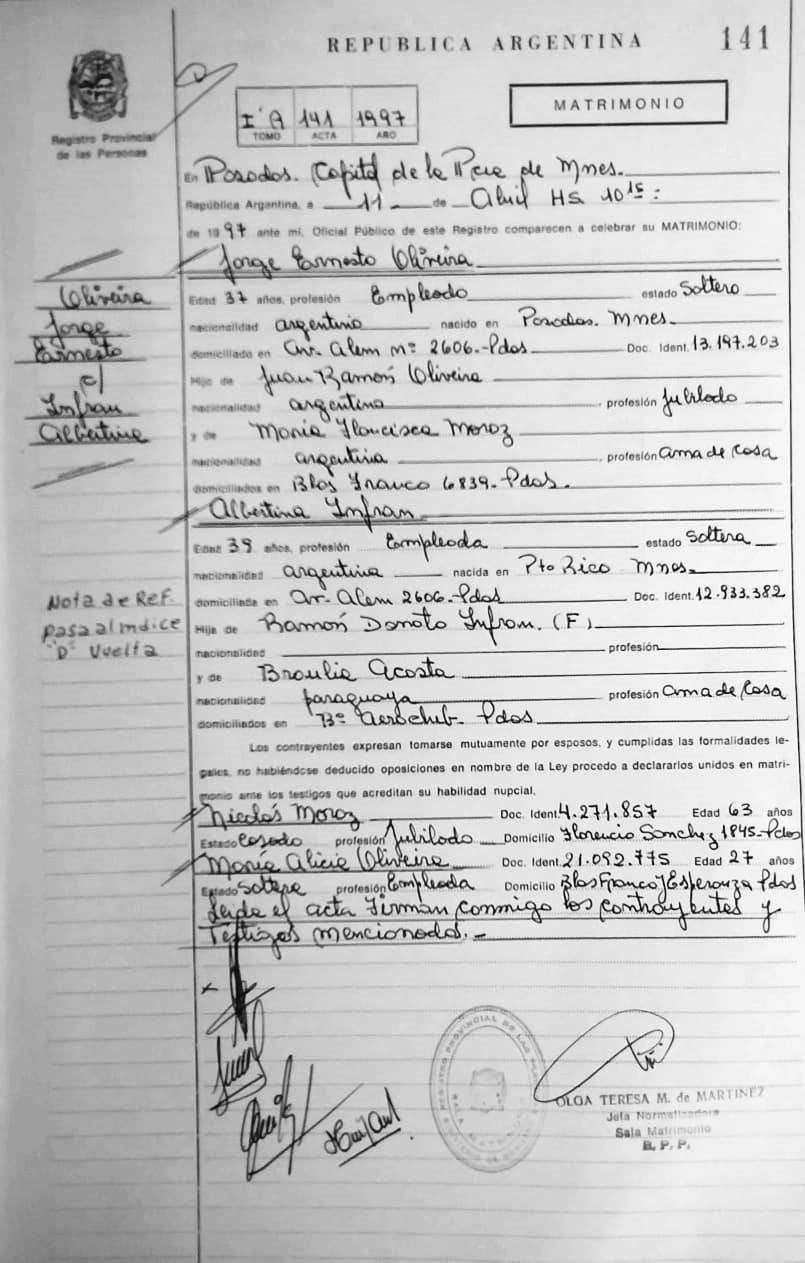 REPUBLICA ARGENTINA 141
Registro Provincial
de las Personas
MATRIMONIO
I°A 141 1997
TOMO ACTA AÑO
En Posadas. Capital de la Pcia de Mnes.
República Argentina, a 11 de Abril HS 10 15:
de 1997 ante mí, Oficial Público de este Registro comparecen a celebrar su MATRIMONIO:
Jorge Ernesto Oliveira
Oliveira
Jorge
Ernesto
c/
Infran
Albertina
Edad 37 años, profesión Empleado estado Soltero
nacionalidad argentino nacido en Posadas. Mnes.
domiciliado en Av. Alem nº 2606.-Pdas Doc. Ident. 13.197.203
Hijo de Juan Ramón Oliveira
nacionalidad argentino profesión Jubilado
y de María Francisca Moroz
nacionalidad argentina profesión ama de casa
domiciliados en Blas Franco 6839.-Pdas.
Albertina Infran
Edad 39 años, profesión Empleada estado Soltera
nacionalidad argentina nacida en Pto Rico Mnes.
domiciliada en Av. Alem 2606.-Pdas Doc. Ident. 12.933.382
Nota de Ref.
pasa al indice
"D" Vuelta
Hija de Ramón Donato Infran. (F)
nacionalidad profesión
y de Braulia Acosta
nacionalidad paraguaya profesión Ama de Casa
domiciliados en Bº Aeroclub- Pdas
Los contrayentes expresan tomarse mutuamente por esposos, y cumplidas las formalidades le-
gales, no habiéndose deducido oposiciones en nombre de la Ley procedo a declararlos unidos en matri-
monio ante los testigos que acreditan su habilidad nupcial.
Nicolás Moroz Doc. Ident. 4.271.857 Edad 63 años
Estado Casado profesión Jubilado Domicilio Florencio Sanchez 1845-Pdas
María Alicia Oliveira Doc. Ident. 21.092.775 Edad 27 años
Estado Soltera profesión Empleada Domicilio Blas Franco y Esperanza Pdas
Leida el acta firman conmigo los contrayentes y
Testigos mencionados.-
REGISTRO PROVINCIAL DE LAS
OLGA TERESA M. de MARTINEZ
Jefa Normatizadora
Sala Matrimonio
R. P. P.